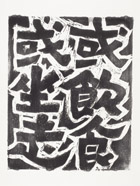 或飲食
或坐